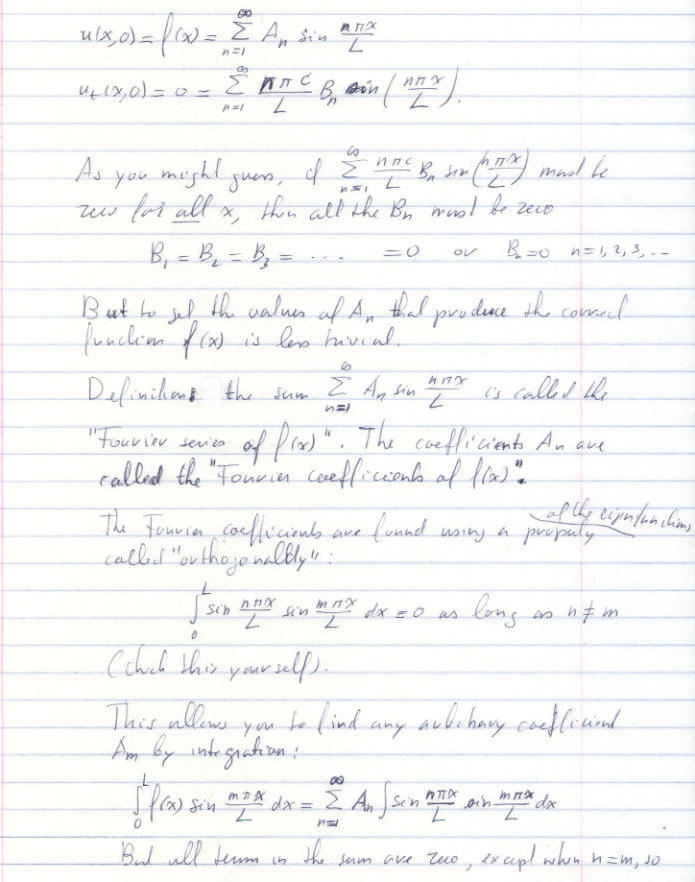 u(x,0) = f(x) = ∑_{n=1}^{∞} A_n sin nπx/L
u_t(x,0) = 0 = ∑_{n=1}^{∞} nπc/L B_n sin (nπx/L).
As you might guess, if ∑_{n=1}^{∞} nπc/L B_n sin(nπx/L) must be
zero for all x, then all the B_n must be zero
B_1 = B_2 = B_3 = ... = 0 or B_n = 0 n = 1, 2, 3, ...
But to get the values of A_n that produce the correct
function f(x) is less trivial.
Definitions the sum ∑_{n=1}^{∞} A_n sin nπx/L is called the
"Fourier series of f(x)". The coefficients A_n are
called the "Fourier coefficients of f(x)".
of the eigenfunctions
The Fourier coefficients are found using a property
called "orthogonality":
∫_0^L sin nπx/L sin mπx/L dx = 0 as long as n ≠ m
(check this yourself).
This allows you to find any arbitrary coefficient
A_m by integration:
∫_0^L f(x) sin mπx/L dx = ∑_{n=1}^{∞} A_n ∫ sin nπx/L sin mπx/L dx
But all terms in the sum are zero, except when n = m, so